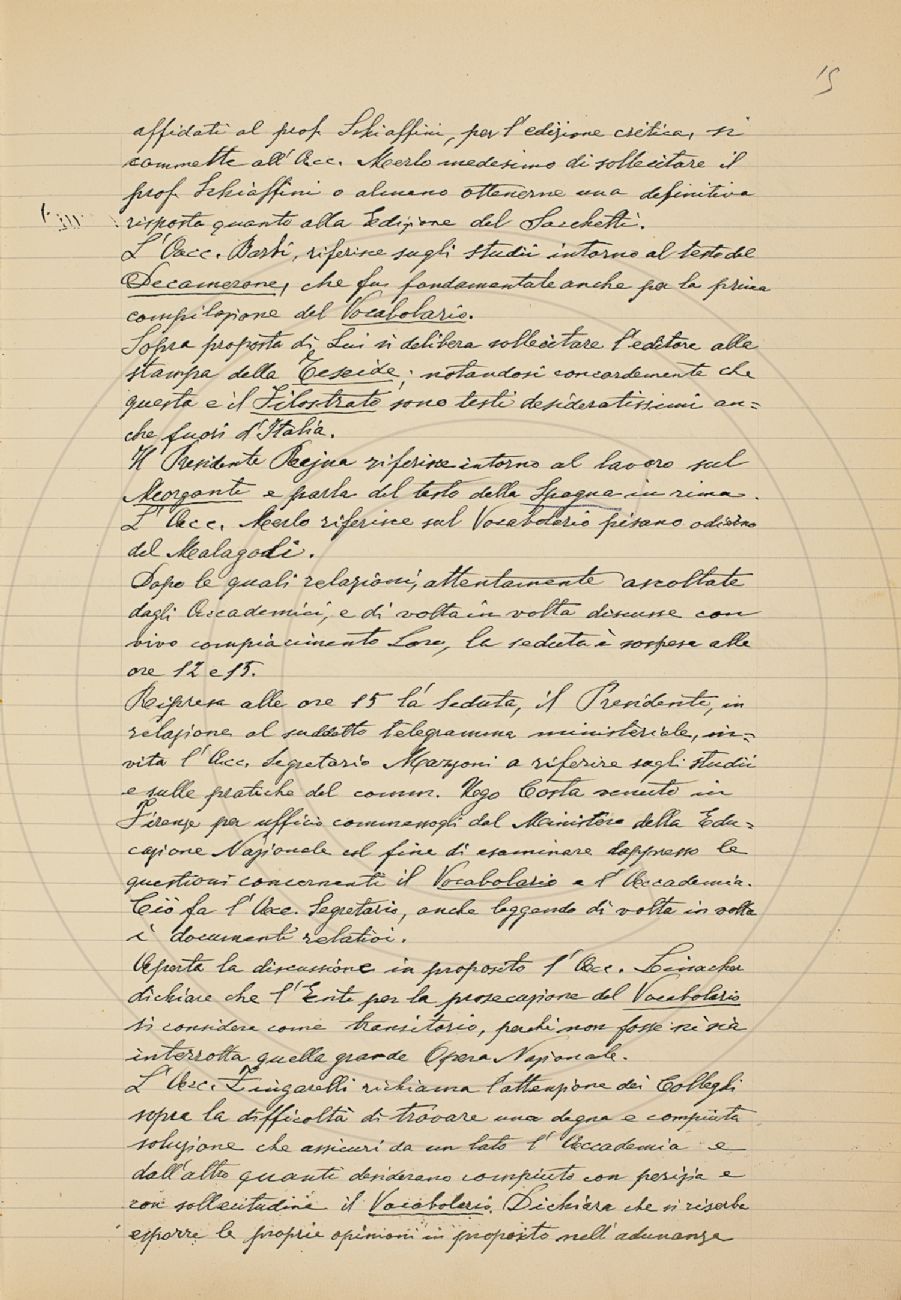 15
affidati al prof. Schiaffini, per l'edizione critica, si
commette all'Acc. Merlo medesimo di sollecitare il
prof. Schiaffini o almeno ottenerne una definitiva
risposta quanto alla Edizione del Sacchetti.
L'Acc. Barbi, riferisce sugli studii intorno al testo del
Decamerone, che fu fondamentale anche per la prima
compilazione del Vocabolario.
Sopra proposta di Lui si delibera sollecitare l'editore alla
stampa della Teseide; notandosi concordemente che
questa e il Filostrato sono testi desideratissimi an=
che fuori d'Italia.
Il Presidente Rajna riferisce intorno al lavoro sul
Morgante e parla del testo della Spagna in rima.
L'Acc. Merlo riferisce sul Vocabolario pisano odierno
del Malagoli.
Dopo le quali relazioni, attentamente ascoltate
dagli Accademici, e di volta in volta discusse con
vivo compiacimento Loro, la seduta è sospesa alle
ore 12 e 15.
Ripresa alle ore 15 la Seduta, il Presidente, in
relazione al suddetto telegramma ministeriale, in=
vita l'Acc. Segretario Mazzoni a riferire sugli studii
e sulle pratiche del comm. Ugo Costa venuto in
Firenze per ufficio commessogli dal Ministero della Edu=
cazione Nazionale col fine di esaminare dappresso le
questioni concernenti il Vocabolario e l'Accademia.
Ciò fa l'Acc. Segretario, anche leggendo di volta in volta
i documenti relativi.
Aperta la discussione in proposito l'Acc. Linaker
dichiara che l'Ente per la prosecuzione del Vocabolario
si considera come transitorio, perchè non fosse nè sia
interrotta quella grande Opera Nazionale.
L'Acc. Zingarelli richiama l'attenzione dei Colleghi
sopra la difficoltà di trovare una degna e compiuta
soluzione che assicuri da un lato l'Accademia e
dall'altro quanti desiderano compiuto con perizia e
con sollecitudine il Vocabolario. Dichiara che si riserba
esporre le proprie opinioni in proposito nell'adunanza